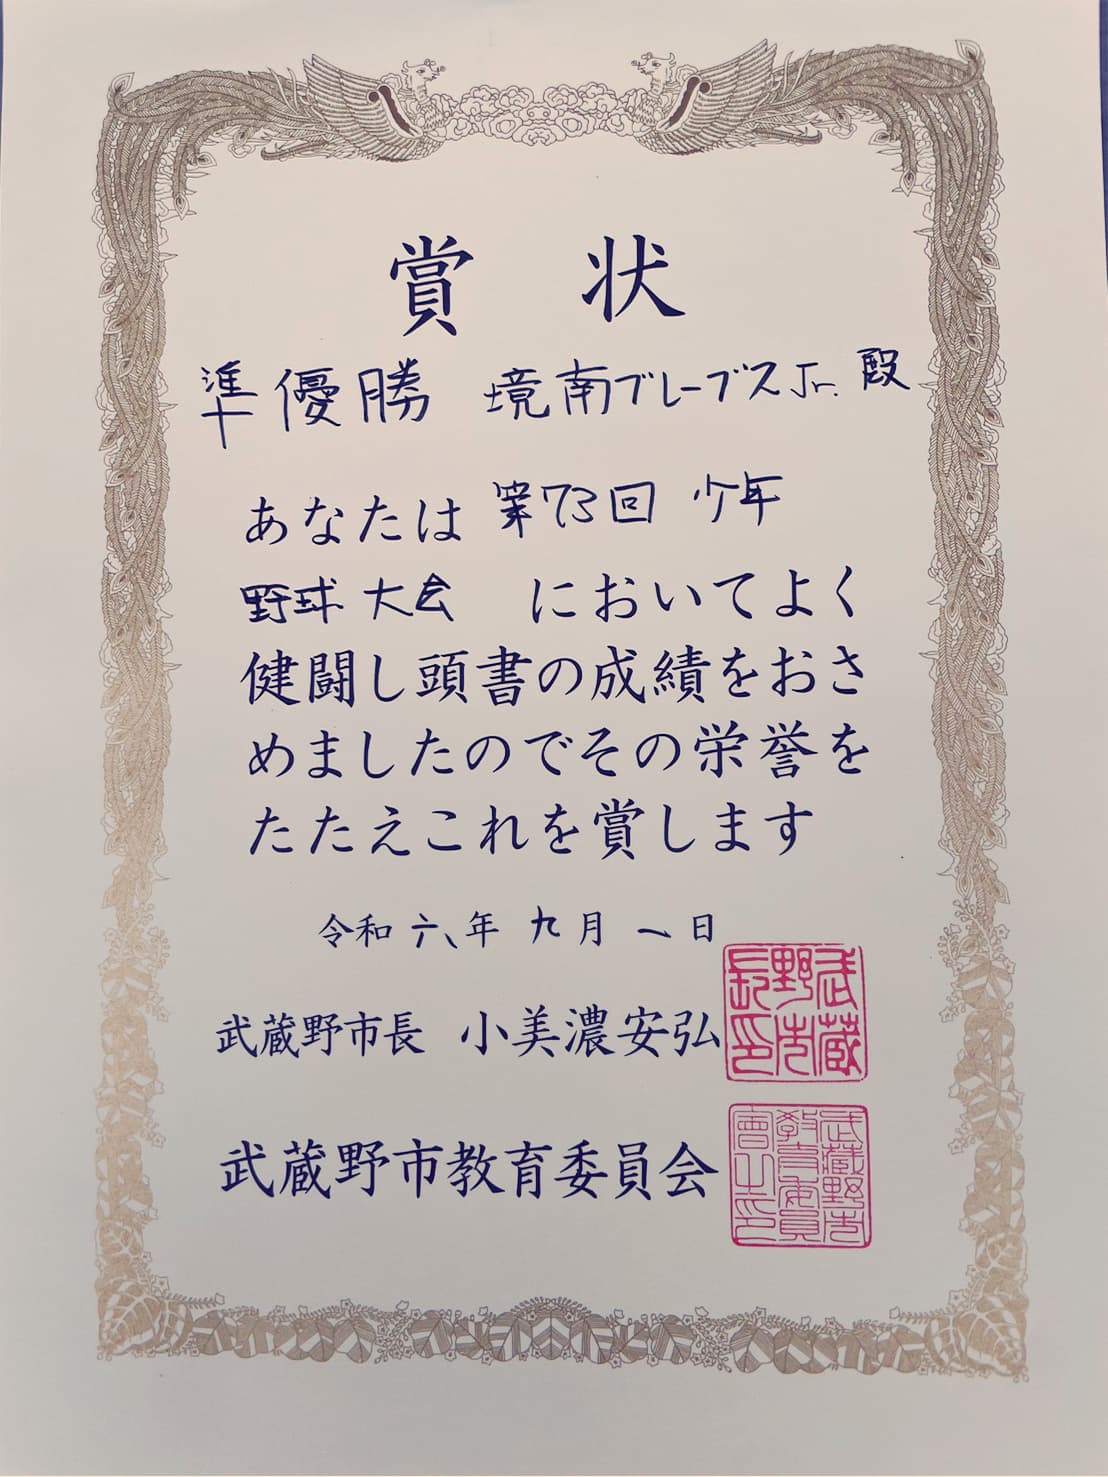 賞状
準優勝 境南ブレーブスJr. 殿
あなたは 第73回 少年
野球大会 においてよく
健闘し頭書の成績をおさ
めましたのでその栄誉を
たたえこれを賞します
令和六年九月一日
武蔵野市長 小美濃安弘
武蔵野市長印
武蔵野市教育委員会
武蔵野市教育委員會之印